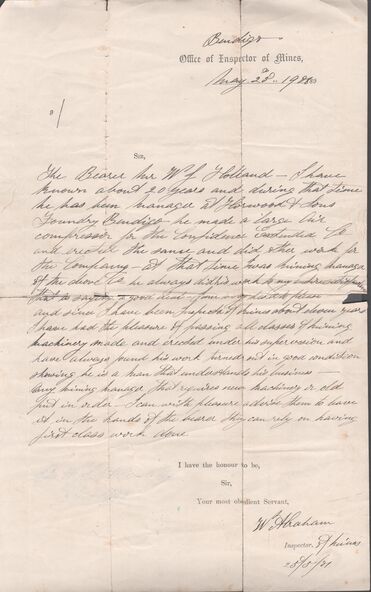 Bendigo
Office of Inspector of Mines,
May 28th 19
Sir,
The Bearer Mr W L Holland — I have
known about 20 years and during that time
he has been manager at Harwood & Sons
Foundry Bendigo he made a large Air
compressor for the Confidence Extended Co
and erected the same and did other work for
the Company — At that time I was mining manager
of the above Co he always did his work to my entire satisfaction
that is saying a good deal
and since I have been Inspector of mines about eleven years
I have had the pleasure of passing all classes of mining
machinery made and erected under his supervision and
have always found his work turned out in good condition
showing he is a man that understands his business —
any mining manager that requires new machinery or old
put in order — I can with pleasure advise them to leave
it in the hands of the bearer they can rely on having
first class work done.
I have the honour to be,
Sir,
Your most obedient Servant,
Wm Abraham
Inspector. Of Mines
28/5/